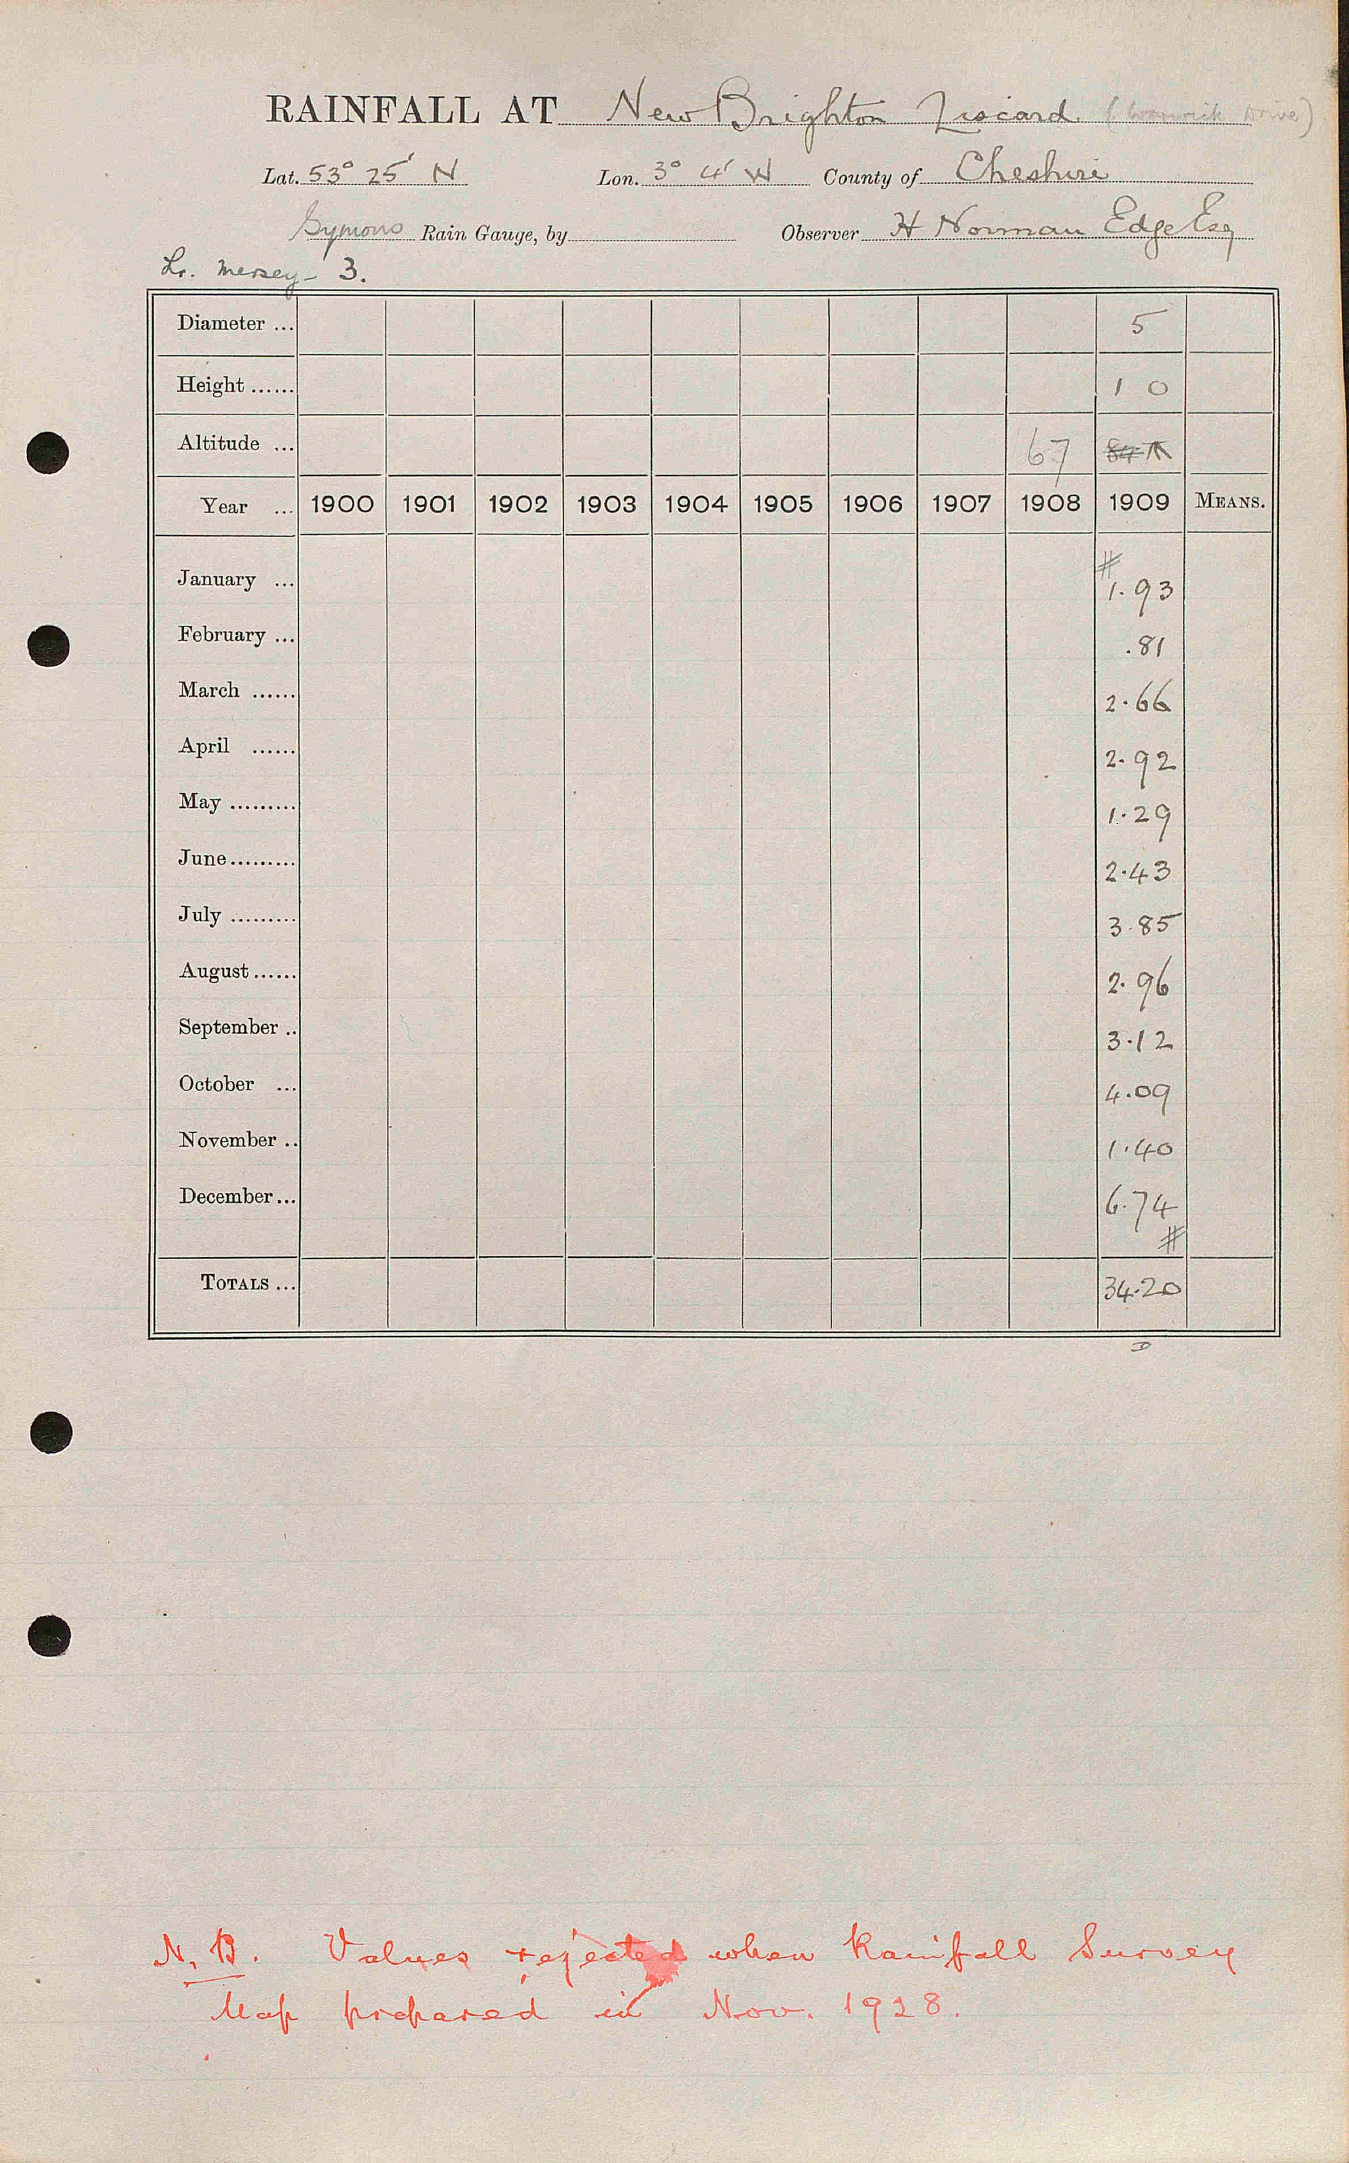 RAINFALL AT New Brighton Liscard (Warwick Drive)
Lat. 53° 25' N Lon. 3° 4' W County of Cheshire
Symons Rain Gauge, by Observer H Norman Edge Esq
Lr. Mersey - 3.
Diameter ... 5
Height ...... 1 0
Altitude ... 67
Year ... 1900 1901 1902 1903 1904 1905 1906 1907 1908 1909 MEANS.
January ... # 1.93
February ... .81
March ...... 2.66
April ...... 2.92
May ......... 1.29
June ......... 2.43
July ......... 3.85
August ...... 2.96
September .. 3.12
October ... 4.09
November .. 1.40
December ... 6.74
#
TOTALS ... 34.20
D
N.B. Values rejected when Rainfall Survey
Map prepared in Nov. 1928.